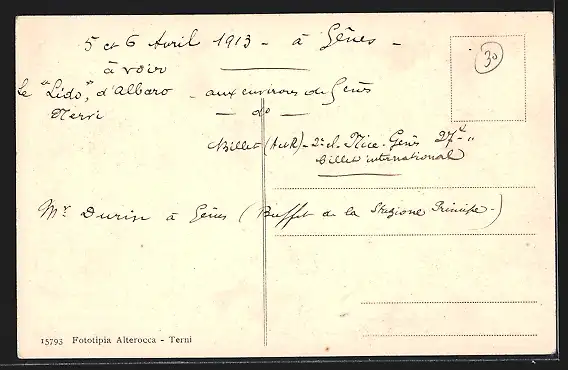 5 et 6 Avril 1913 - à Gênes -
30
à voir
le "Lido," d'Albaro - aux environs de Gênes
Nervi — do —
Billet (A et R) - 2e cl. Nice - Gênes 27 4 "
billet international
Mr Durin à Gênes (Buffet de la Stazione Principe -)
15793 Fototipia Alterocca - Terni